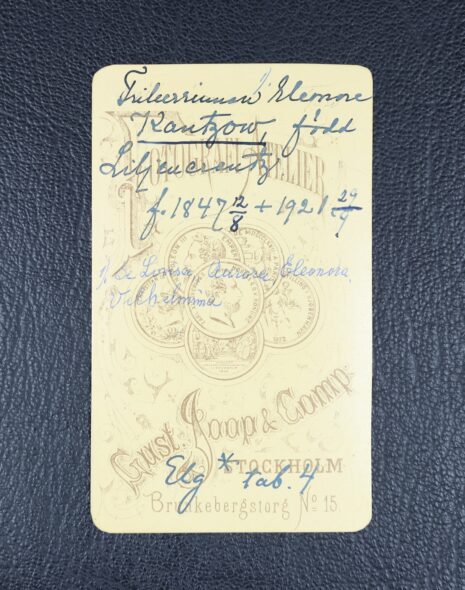 Friherrinnan Eleonore
Kantzow, född
Liljencrantz
f. 1847 12/8 + 1921 29/9
Lovisa, Aurora, Eleonora
Vilhelmina
ATELIER
Gust. Joop & Comp.
STOCKHOLM
Elg * tab. 4
Brunkebergstorg No 15.